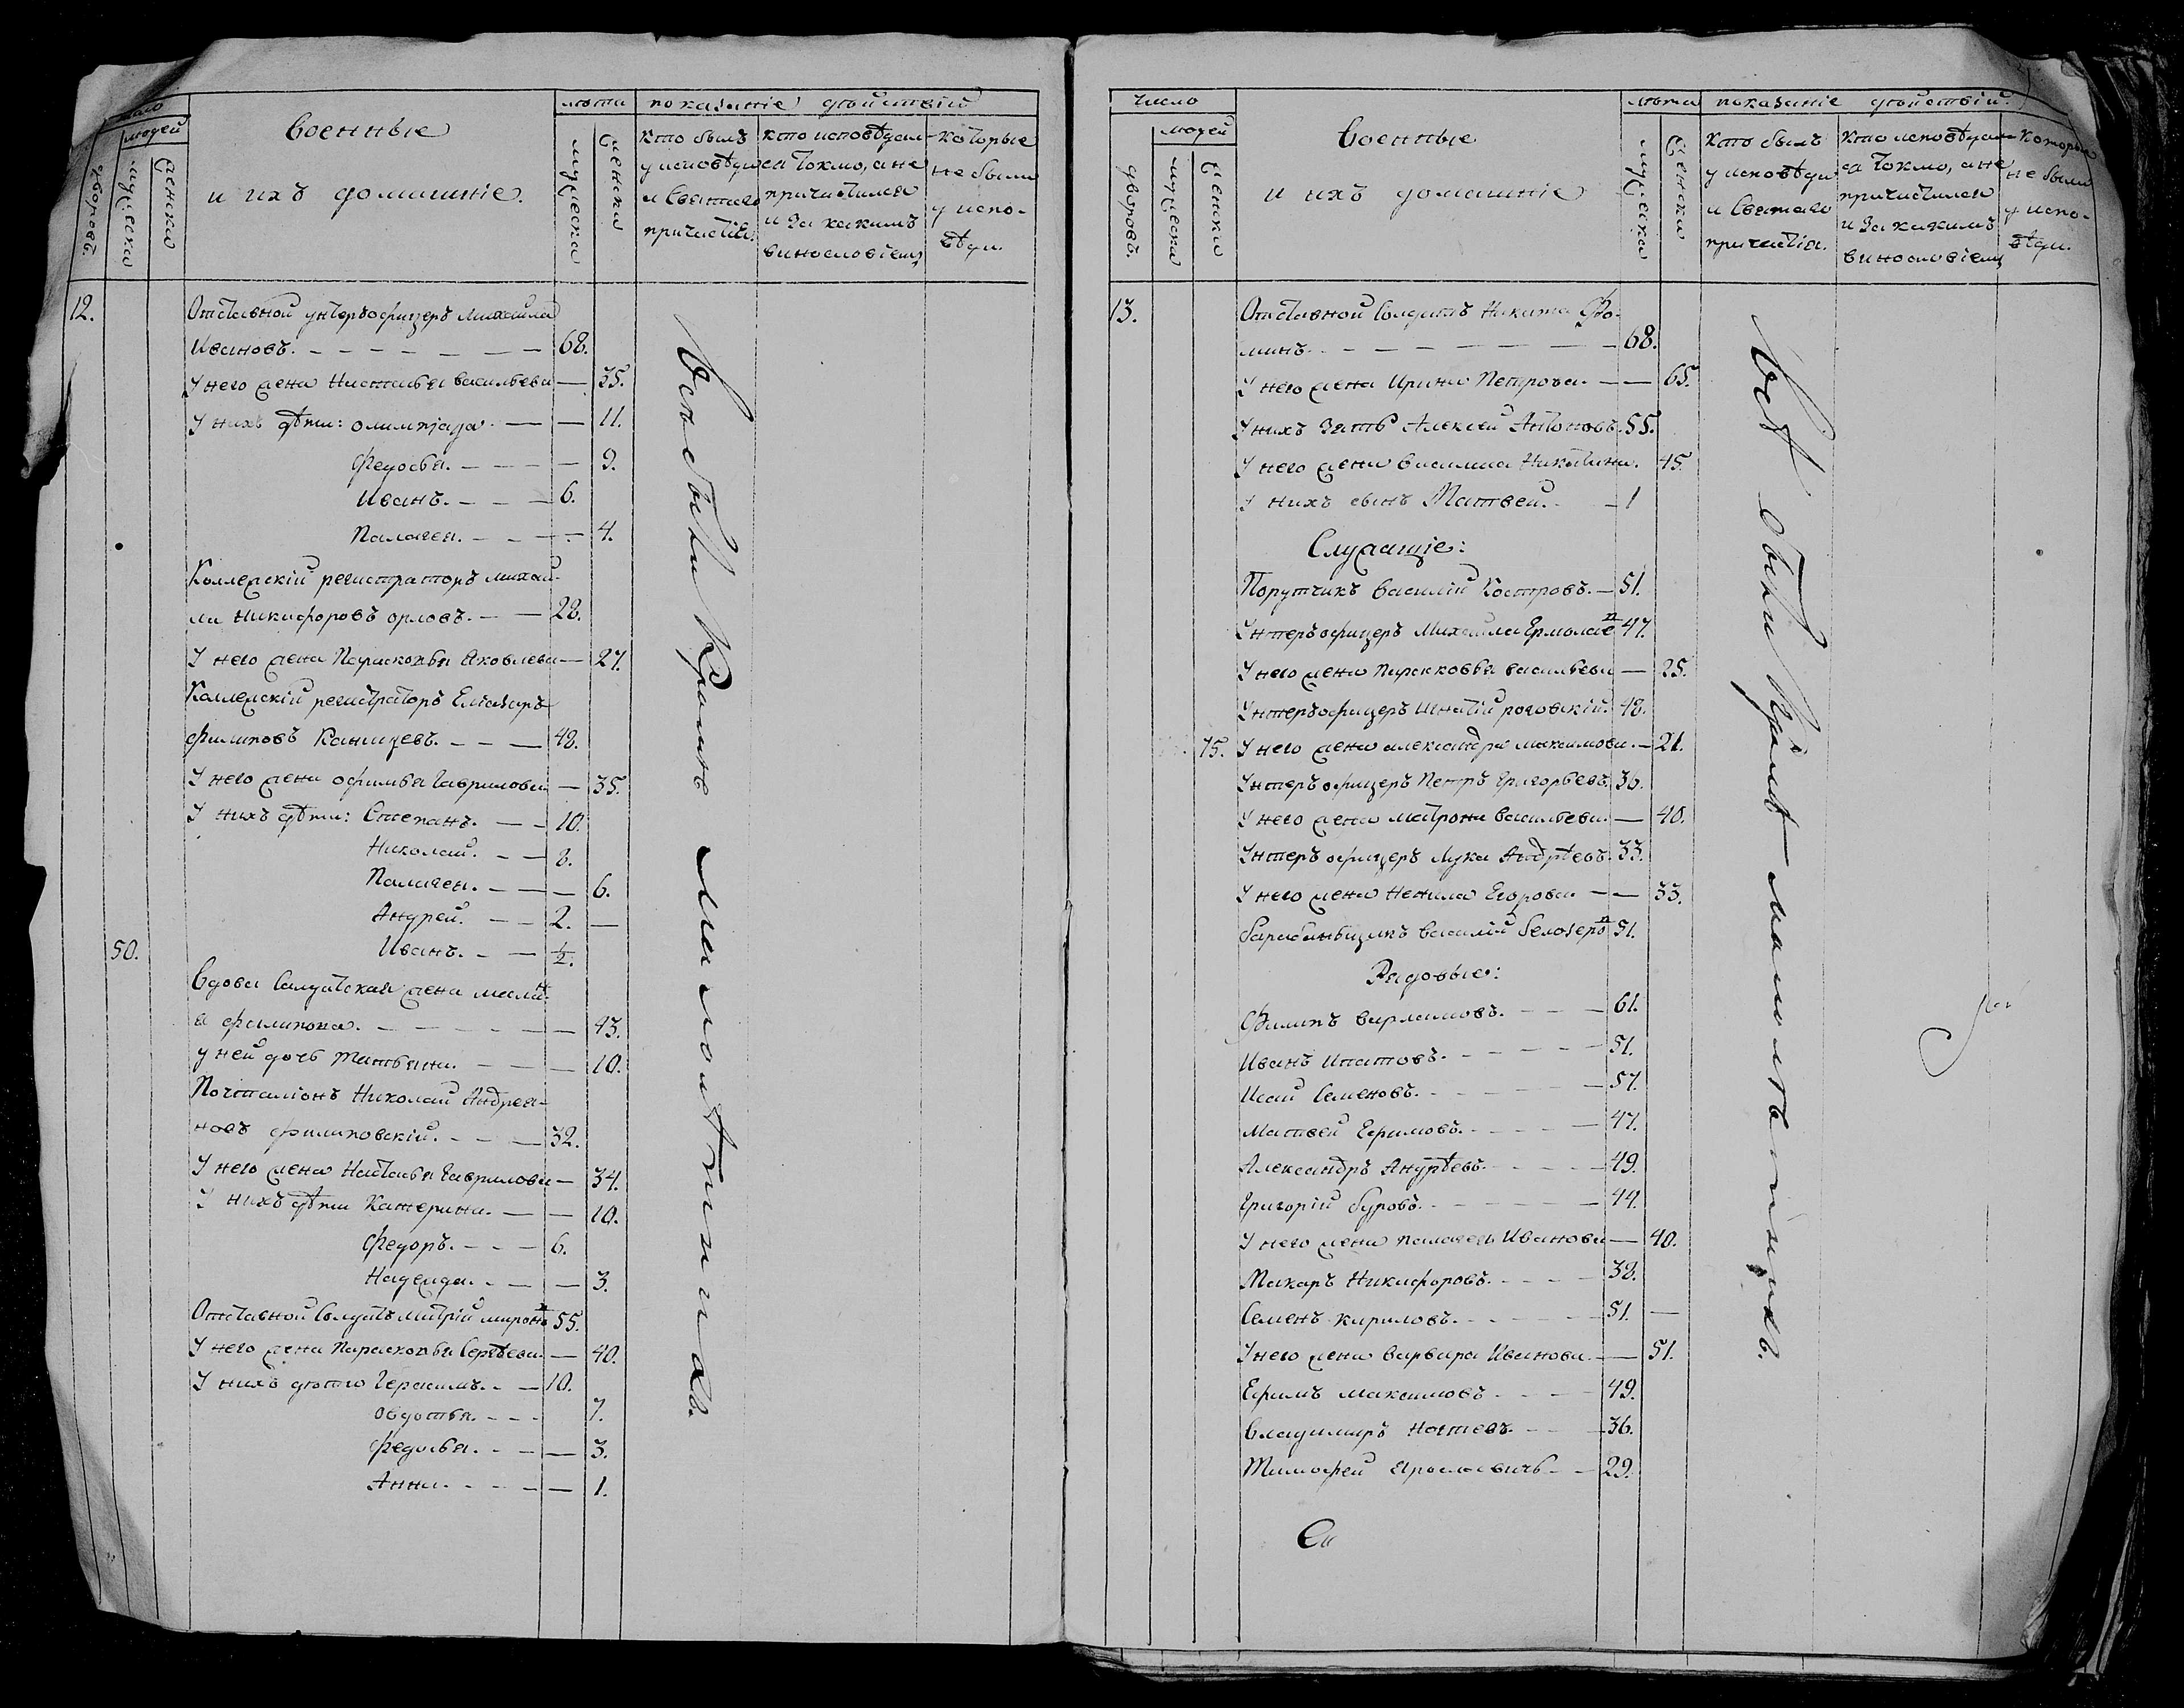 число
людей
дворовъ.
мужеска
женска
Военные
и ихъ домашніе.
лѣта
показаніе дѣйствій
мужеска
женска
кто былъ
у исповѣди
и Святаго
причастія.
кто исповѣдал-
ся токмо, а не
причастился
и за какимъ
винословіемъ
которые
не были
у испо-
вѣди.
12.
Отставной унтеръофицеръ Михаила
Ивановъ. 68.
У него жена Настасья васильева 35.
У нихъ дѣти: олимпіада. 11.
Федосья. 9.
Иванъ. 6.
Палагея. 4.
Коллежскій регистраторъ михаи-
ла Никифоровъ орловъ. 28.
У него жена Парасковья Яковлева 27.
Коллежскій регистраторъ Елизаръ
филиповъ Канищевъ. 48.
У него жена офимья Гаврилова 35.
У нихъ дѣти: Степанъ. 10.
Николай. 8.
Палагея. 6.
Андрей. 2.
50. Иванъ. ½.
Вдова Салдатская жена мелан
я филипова. 43.
у ней дочь Татьяна. 10.
Почталіонъ Николай Андреа-
новъ филиповскій. 32.
У него жена Настасья Гаврилова 34.
У нихъ дѣти Катерина. 10.
Федоръ. 6.
Надежда. 3.
Отставной Солдатъ митрій миронъ 55.
У него жена Парасковья Сергѣева. 40.
У нихъ дѣти Герасимъ. 10.
Овдотья. 7.
Федосья. 3.
Анна. 1.
Всѣ были Кромѣ малолѣтнихъ.
число
людей
дворовъ.
мужеска
женска
Военные
и ихъ домашніе
лѣта
показаніе дѣйствій.
мужеска
женска
кто былъ
у исповѣди
и Святаго
причастія.
кто исповѣдал-
ся токмо, а не
причастился
и за какимъ
винословіемъ
которые
не были
у испо-
вѣди.
13.
Отставной Солдатъ Никита Фо-
минъ. 68.
У него жена Ирина Петрова. 65.
У нихъ зять Алексей Антоновъ. 55.
У него жена василиса Никитина. 45.
У нихъ сынъ Матвей. 1
Служащіе:
Порутчикъ Василій Костровъ. 51.
Унтеръофицеръ Михаила Ермолае 47.
У него жена Парасковья васильева 25.
Унтеръофицеръ Игнатій роговскій. 48.
75. У него жена александра максимова. 21.
Унтеръофицеръ Петръ Григорьевъ. 36.
У него жена матрона васильева. 40.
Унтеръофицеръ Лука Андрѣевъ. 33.
У него жена Ненила Егорова. 33.
барабаньщикъ василій белозеро 51.
Рядовые:
Филипъ варламовъ. 61.
Иванъ Ипатовъ. 51.
Исай Семеновъ. 57.
Матвей Ефимовъ. 47.
Александръ Андрѣевъ. 49.
Григорій буровъ. 44.
У него жена палагея Иванова 40.
Макаръ Никифоровъ. 38.
Семенъ кириловъ. 51.
У него жена варвара Иванова. 51.
Ефимъ максимовъ. 49.
владимиръ 36.
Тимофей Ярославичь 29.
Всѣ были Кромѣ малолѣтнихъ.